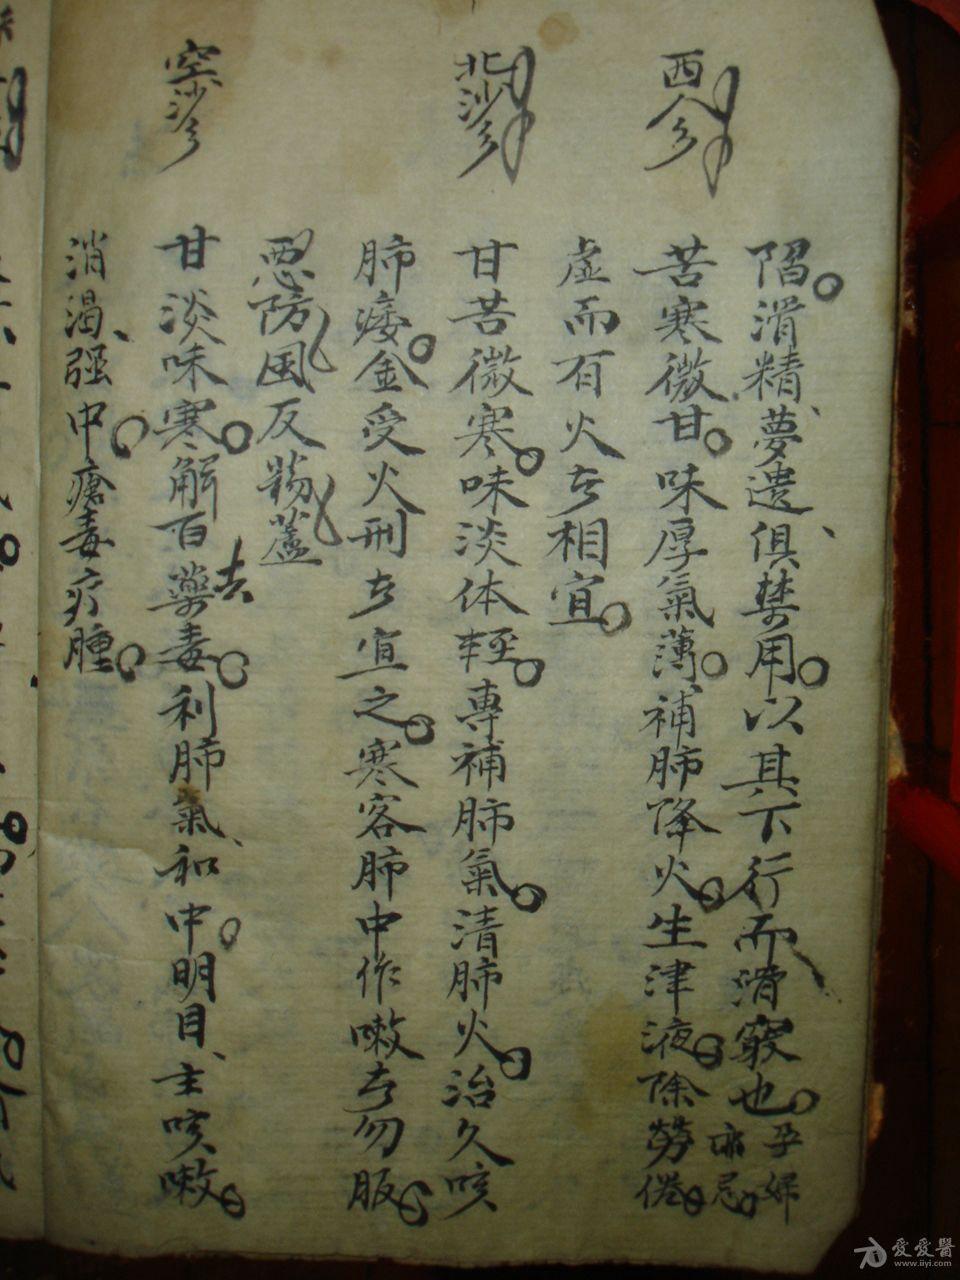 陷。滑精、夢遺、俱禁用。以其下行而滑竅也。孕婦亦忌。
西人參
苦寒微甘。味厚氣薄。補肺降火。生津液。除勞倦。
虛而有火者相宜。
北沙參
甘苦微寒。味淡体輕。專補肺氣。清肺火。治久咳
肺痿。金受火刑者宜之。寒客肺中作嗽者勿服。
惡防風反藜蘆
空沙參
甘淡味寒。解百藥毒。利肺氣、和中。明目、主咳嗽。
消渴、强中。瘡毒疔腫。
愛愛醫
www.iiyi.com